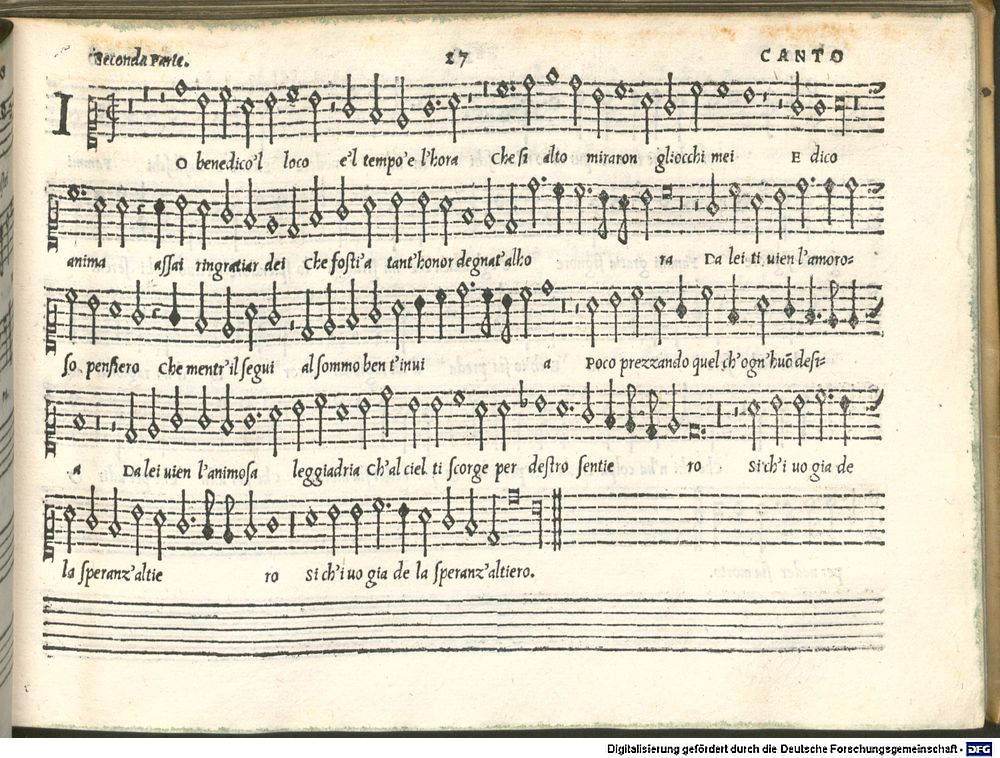 Seconda Parte. 27 CANTO
I
O benedico'l loco e'l tempo'e l'hora Che si alto miraron gliocchi mei E dico
anima assai ringratiar dei Che fosti'a tant'honor degnat'alho ra Da lei ti uien l'amoro=
so pensiero Che mentr'il segui al sommo ben t'inui a Poco prezzando quel ch'ogn'huõ desi=
a Da lei uien l'animosa leggiadria Ch'al ciel ti scorge per destro sentie ro Si ch'i uo gia de
la speranz'altie ro si ch'i uo gia de la speranz'altiero.
Digitalisierung gefördert durch die Deutsche Forschungsgemeinschaft - DFG